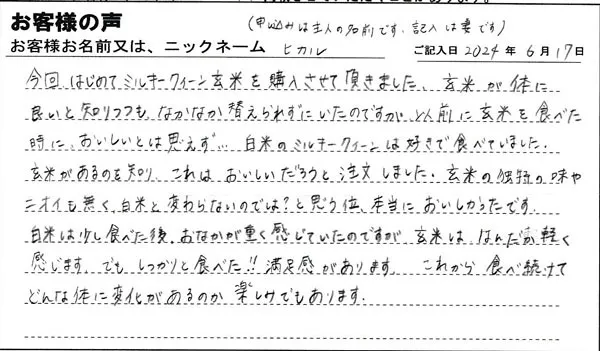 お客様の声
(申込みは主人の名前です、記入は妻です)
お客様お名前又は、ニックネーム ヒカル ご記入日 2024年 6月 17日
今回、はじめてミルキークィーン玄米を購入させて頂きました。玄米が体に
良いと知りつつも、なかなか替えられずにいたのですが、どん前に玄米を食べた
時に、おいしいとは思えず… 白米のミルキークィーンは好きで食べていました。
玄米があるのを知り、これはおいしいだろうと注文しました。玄米の独特の味や
ニオイも無く、白米と変わらないのでは?と思う位、本当においしかったです。
白米は少し食べた後、おなかが重く感じていたのですが、玄米は、なんだか軽く
感じます。でも、しっかりと食べた!!満足感があります。これから食べ続けて
どんな体に変化があるのか、楽しみでもあります。